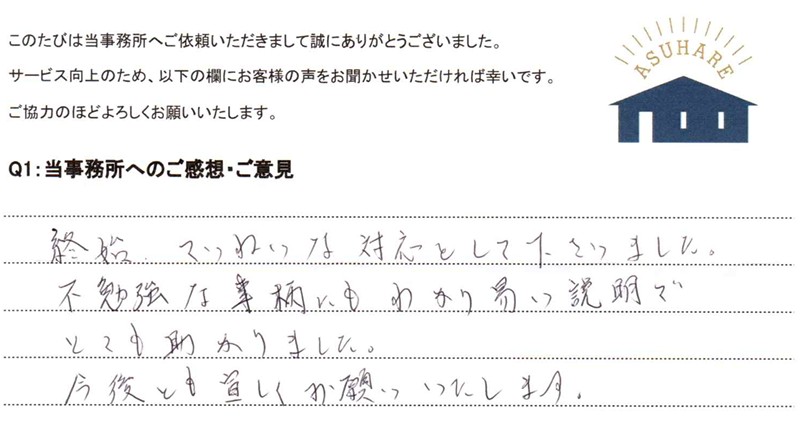 このたびは当事務所へご依頼いただきまして誠にありがとうございました。
サービス向上のため、以下の欄にお客様の声をお聞かせいただければ幸いです。
ご協力のほどよろしくお願いいたします。
ASUHARE
Q1:当事務所へのご感想・ご意見
終始、ていねいな対応をして下さいました。
不勉強な事柄にもわかり易い説明で
とても助かりました。
今後とも宜しくお願いいたします。